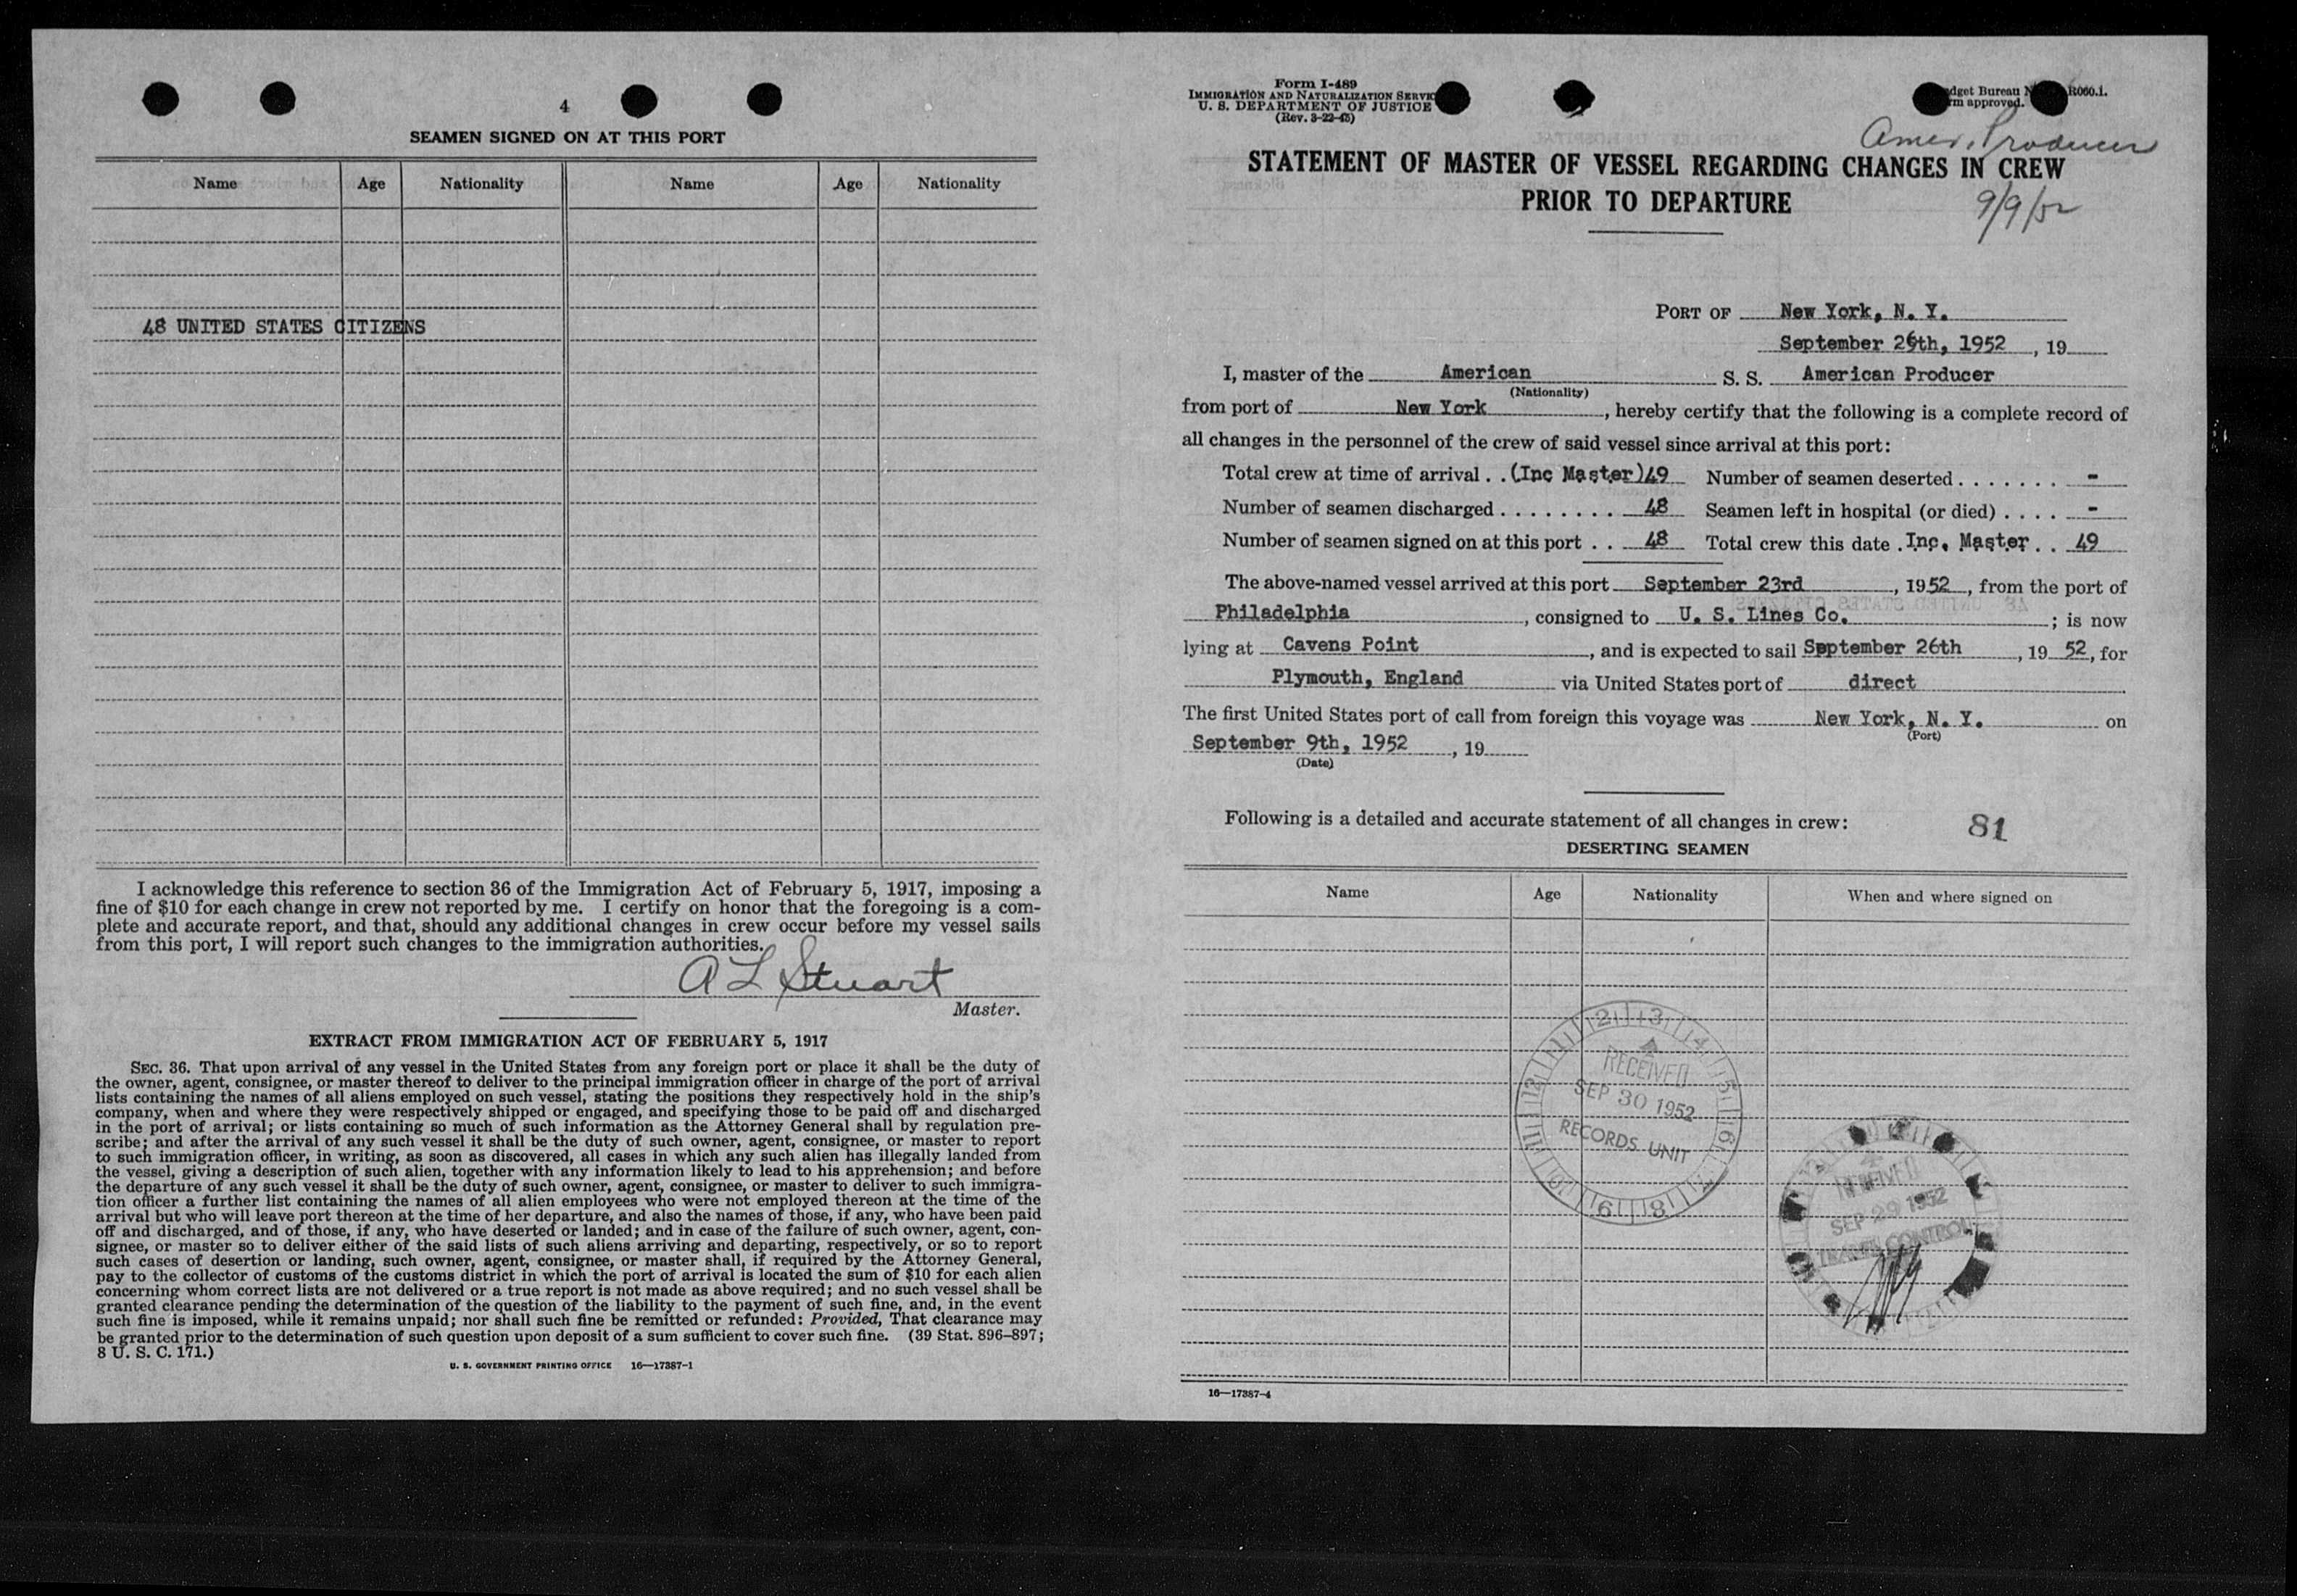 4
SEAMEN SIGNED ON AT THIS PORT
Name Age Nationality Name Age Nationality
48 UNITED STATES CITIZENS
I acknowledge this reference to section 36 of the Immigration Act of February 5, 1917, imposing a
fine of $10 for each change in crew not reported by me. I certify on honor that the foregoing is a com-
plete and accurate report, and that, should any additional changes in crew occur before my vessel sails
from this port, I will report such changes to the immigration authorities.
A L Stuart
Master.
EXTRACT FROM IMMIGRATION ACT OF FEBRUARY 5, 1917
SEC. 36. That upon arrival of any vessel in the United States from any foreign port or place it shall be the duty of
the owner, agent, consignee, or master thereof to deliver to the principal immigration officer in charge of the port of arrival
lists containing the names of all aliens employed on such vessel, stating the positions they respectively hold in the ship's
company, when and where they were respectively shipped or engaged, and specifying those to be paid off and discharged
in the port of arrival; or lists containing so much of such information as the Attorney General shall by regulation pre-
scribe; and after the arrival of any such vessel it shall be the duty of such owner, agent, consignee, or master to report
to such immigration officer, in writing, as soon as discovered, all cases in which any such alien has illegally landed from
the vessel, giving a description of such alien, together with any information likely to lead to his apprehension; and before
the departure of any such vessel it shall be the duty of such owner, agent, consignee, or master to deliver to such immigra-
tion officer a further list containing the names of all alien employees who were not employed thereon at the time of the
arrival but who will leave port thereon at the time of her departure, and also the names of those, if any, who have been paid
off and discharged, and of those, if any, who have deserted or landed; and in case of the failure of such owner, agent, con-
signee, or master so to deliver either of the said lists of such aliens arriving and departing, respectively, or so to report
such cases of desertion or landing, such owner, agent, consignee, or master shall, if required by the Attorney General,
pay to the collector of customs of the customs district in which the port of arrival is located the sum of $10 for each alien
concerning whom correct lists are not delivered or a true report is not made as above required; and no such vessel shall be
granted clearance pending the determination of the question of the liability to the payment of such fine, and, in the event
such fine is imposed, while it remains unpaid; nor shall such fine be remitted or refunded: Provided, That clearance may
be granted prior to the determination of such question upon deposit of a sum sufficient to cover such fine. (39 Stat. 896–897;
8 U. S. C. 171.)
U. S. GOVERNMENT PRINTING OFFICE 16—17387-1
Form I-489
IMMIGRATION AND NATURALIZATION SERVIC
U. S. DEPARTMENT OF JUSTICE
(Rev. 3-22-45)
dget Bureau N R060.1.
rm approved.
Amer. Producer
STATEMENT OF MASTER OF VESSEL REGARDING CHANGES IN CREW
PRIOR TO DEPARTURE
9/9/52
PORT OF New York, N. Y.
September 26th, 1952, 19
I, master of the American S. S. American Producer
(Nationality)
from port of New York, hereby certify that the following is a complete record of
all changes in the personnel of the crew of said vessel since arrival at this port:
Total crew at time of arrival . . (Inc Master)49 Number of seamen deserted . . . . . . . -
Number of seamen discharged . . . . . . . . 48 Seamen left in hospital (or died) . . . . -
Number of seamen signed on at this port . . 48 Total crew this date . Inc. Master . . 49
The above-named vessel arrived at this port September 23rd, 1952, from the port of
Philadelphia, consigned to U. S. Lines Co.; is now
lying at Cavens Point, and is expected to sail September 26th, 19 52, for
Plymouth, England via United States port of direct
The first United States port of call from foreign this voyage was New York, N. Y. on
(Port)
September 9th, 1952, 19
(Date)
Following is a detailed and accurate statement of all changes in crew:
81
DESERTING SEAMEN
Name Age Nationality When and where signed on
RECEIVED
SEP 30 1952
RECORDS UNIT
RECEIVED
SEP 29 1952
CONTROL
16—17387-4